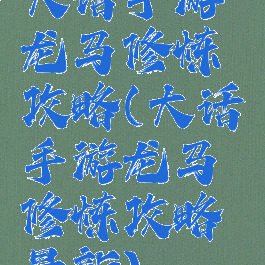 大话手游
龙马修炼
攻略(大话
手游龙马
修炼攻略
最新)